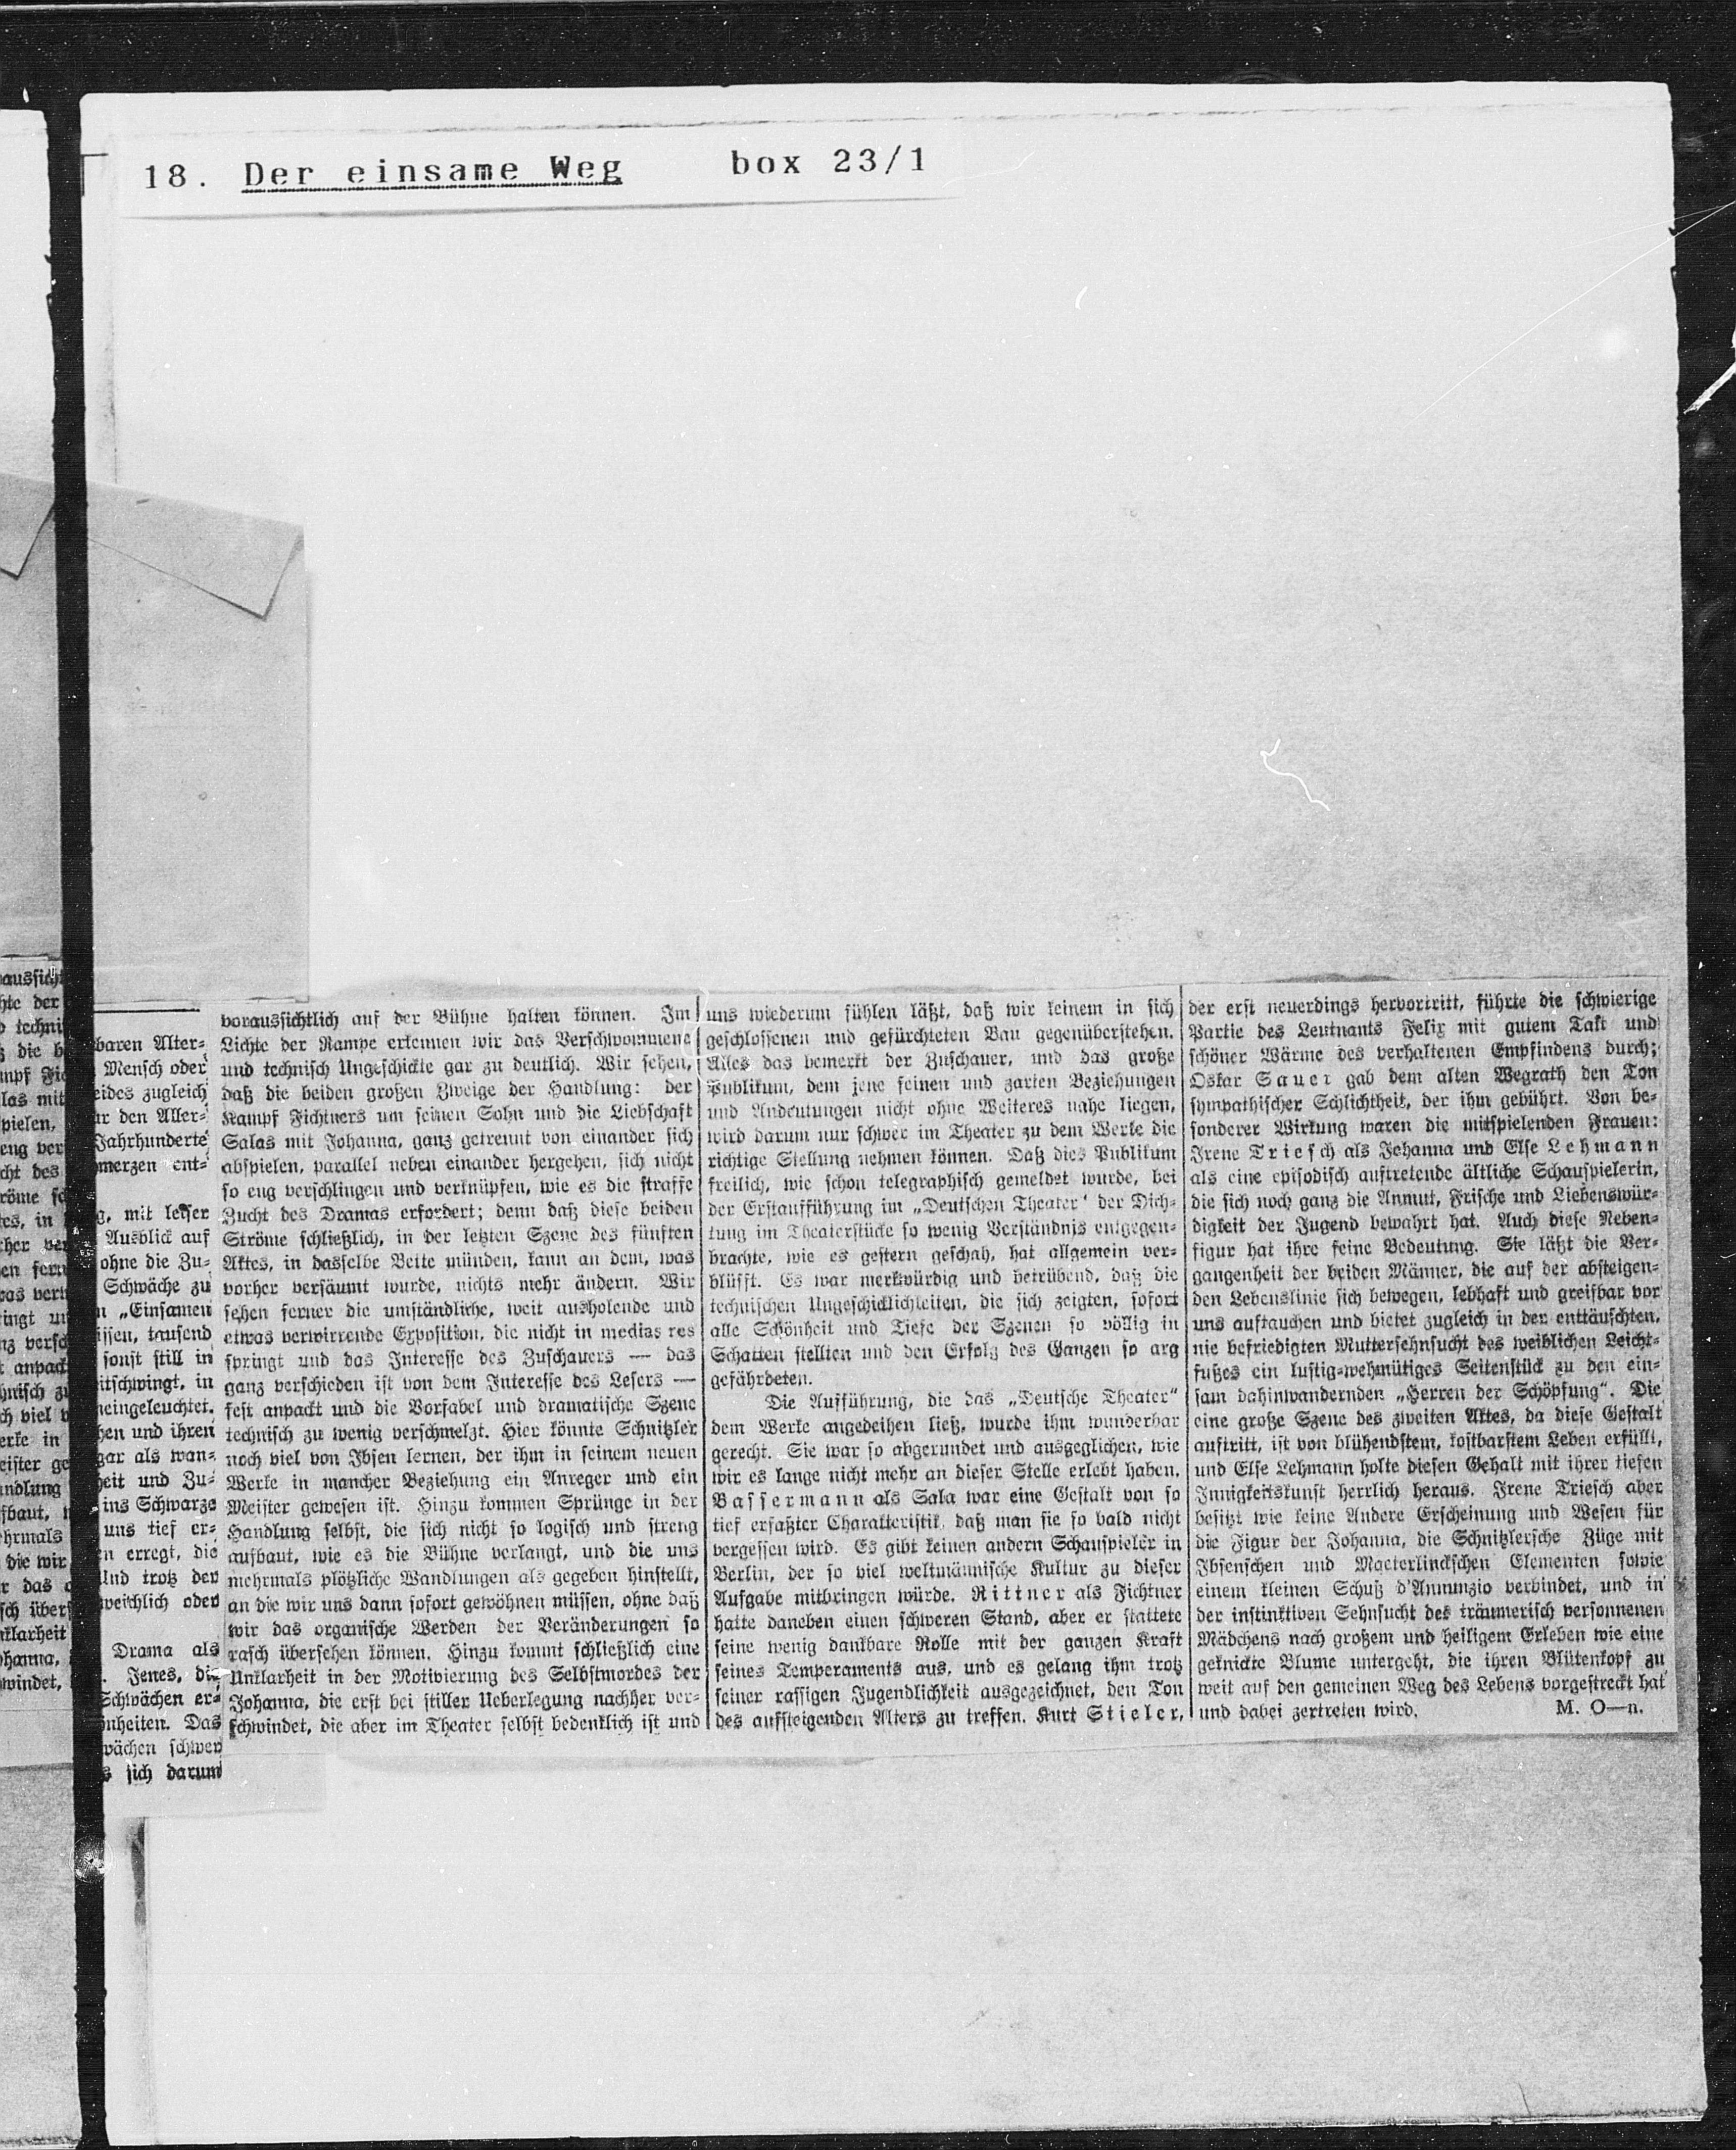 18. Der einsame Weg box 23/1
baren Alter-
Mensch oder
eides zugleich
ur den Aller-
Jahrhunderte
merzen ent-
mit leiser
Ausblick auf
ohne die Zu-
Schwäche zu
„Einsamen
issen, tausend
sonst still in
itschwingt, in
neingeleuchtet.
hen und ihren
gar als wan-
heit und Zu-
ins Schwarze
uns tief er-
en erregt, die
Und trotz der
weichlich oder
Drama als
Jenes, die
Schwächen er-
nheiten. Das
wächen schwer
sich darum
voraussichtlich auf der Bühne halten können. Im
Lichte der Rampe erkennen wir das Verschwommene
und technisch Ungeschickte gar zu deutlich. Wir sehen,
daß die beiden großen Zweige der Handlung: der
Kampf Fichtners um seinen Sohn und die Liebschaft
Salas mit Johanna, ganz getrennt von einander sich
abspielen, parallel neben einander hergehen, sich nicht
so eng verschlingen und verknüpfen, wie es die straffe
Zucht des Dramas erfordert; denn daß diese beiden
Ströme schließlich, in der letzten Szene des fünften
Aktes, in dasselbe Bette münden, kann an dem, was
vorher versäumt wurde, nichts mehr ändern. Wir
sehen ferner die umständliche, weit ausholende und
etwas verwirrende Exposition, die nicht in medias res
springt und das Interesse des Zuschauers — das
ganz verschieden ist von dem Interesse des Lesers —
fest anpackt und die Vorfabel und dramatische Szene
technisch zu wenig verschmelzt. Hier könnte Schnitzler
noch viel von Ibsen lernen, der ihm in seinem neuen
Werke in mancher Beziehung ein Anreger und ein
Meister gewesen ist. Hinzu kommen Sprünge in der
Handlung selbst, die sich nicht so logisch und streng
aufbaut, wie es die Bühne verlangt, und die uns
mehrmals plötzliche Wandlungen als gegeben hinstellt,
an die wir uns dann sofort gewöhnen müssen, ohne daß
wir das organische Werden der Veränderungen so
rasch übersehen können. Hinzu kommt schließlich eine
Unklarheit in der Motivierung des Selbstmordes der
Johanna, die erst bei stiller Ueberlegung nachher ver-
schwindet, die aber im Theater selbst bedenklich ist und
uns wiederum fühlen läßt, daß wir keinem in sich
geschlossenen und gefürchteten Bau gegenüberstehen.
Alles das bemerkt der Zuschauer, und das große
Publikum, dem jene feinen und zarten Beziehungen
und Andeutungen nicht ohne Weiteres nahe liegen,
wird darum nur schwer im Theater zu dem Werke die
richtige Stellung nehmen können. Daß dies Publikum
freilich, wie schon telegraphisch gemeldet wurde, bei
der Erstaufführung im „Deutschen Theater“ der Dich-
tung im Theaterstücke so wenig Verständnis entgegen-
brachte, wie es gestern geschah, hat allgemein ver-
blüfft. Es war merkwürdig und betrübend, daß die
technischen Ungeschicklichkeiten, die sich zeigten, sofort
alle Schönheit und Tiefe der Szenen so völlig in
Schatten stellten und den Erfolg des Ganzen so arg
gefährdeten.
Die Aufführung, die das „Deutsche Theater“
dem Werke angedeihen ließ, wurde ihm wunderbar
gerecht. Sie war so abgerundet und ausgeglichen, wie
wir es lange nicht mehr an dieser Stelle erlebt haben.
Bassermann als Sala war eine Gestalt von so
tief erfaßter Charakteristik, daß man sie so bald nicht
vergessen wird. Es gibt keinen andern Schauspieler in
Berlin, der so viel weltmännische Kultur zu dieser
Aufgabe mitbringen würde. Rittner als Fichtner
hatte daneben einen schweren Stand, aber er stattete
seine wenig dankbare Rolle mit der ganzen Kraft
seines Temperaments aus, und es gelang ihm trotz
seiner rassigen Jugendlichkeit ausgezeichnet, den Ton
des aufsteigenden Alters zu treffen. Kurt Stieler,
der erst neuerdings hervortritt, führte die schwierige
Partie des Leutnants Felix mit gutem Takt und
schöner Wärme des verhaltenen Empfindens durch;
Oskar Sauer gab dem alten Wegrath den Ton
sympathischer Schlichtheit, der ihm gebührt. Von be-
sonderer Wirkung waren die mitspielenden Frauen:
Irene Triesch als Johanna und Else Lehmann
als eine episodisch auftretende ältliche Schauspielerin,
die sich noch ganz die Anmut, Frische und Liebenswür-
digkeit der Jugend bewahrt hat. Auch diese Neben-
figur hat ihre feine Bedeutung. Sie läßt die Ver-
gangenheit der beiden Männer, die auf der absteigen-
den Lebenslinie sich bewegen, lebhaft und greifbar vor
uns auftauchen und bietet zugleich in der enttäuschten,
nie befriedigten Muttersehnsucht des weiblichen Leicht-
fußes ein lustig-wehmütiges Seitenstück zu den ein-
sam dahinwandernden „Herren der Schöpfung“. Die
eine große Szene des zweiten Aktes, da diese Gestalt
auftritt, ist von blühendstem, kostbarstem Leben erfüllt,
und Else Lehmann holte diesen Gehalt mit ihrer tiefen
Innigkeitskunst herrlich heraus. Irene Triesch aber
besitzt wie keine Andere Erscheinung und Wesen für
die Figur der Johanna, die Schnitzlersche Züge mit
Ibsenschen und Maeterlinckschen Elementen sowie
einem kleinen Schuß d'Annunzio verbindet, und in
der instinktiven Sehnsucht des träumerisch versonnenen
Mädchens nach großem und heiligem Erleben wie eine
geknickte Blume untergeht, die ihren Blütenkopf zu
weit auf den gemeinen Weg des Lebens vorgestreckt hat
und dabei zertreten wird. M. O—n.